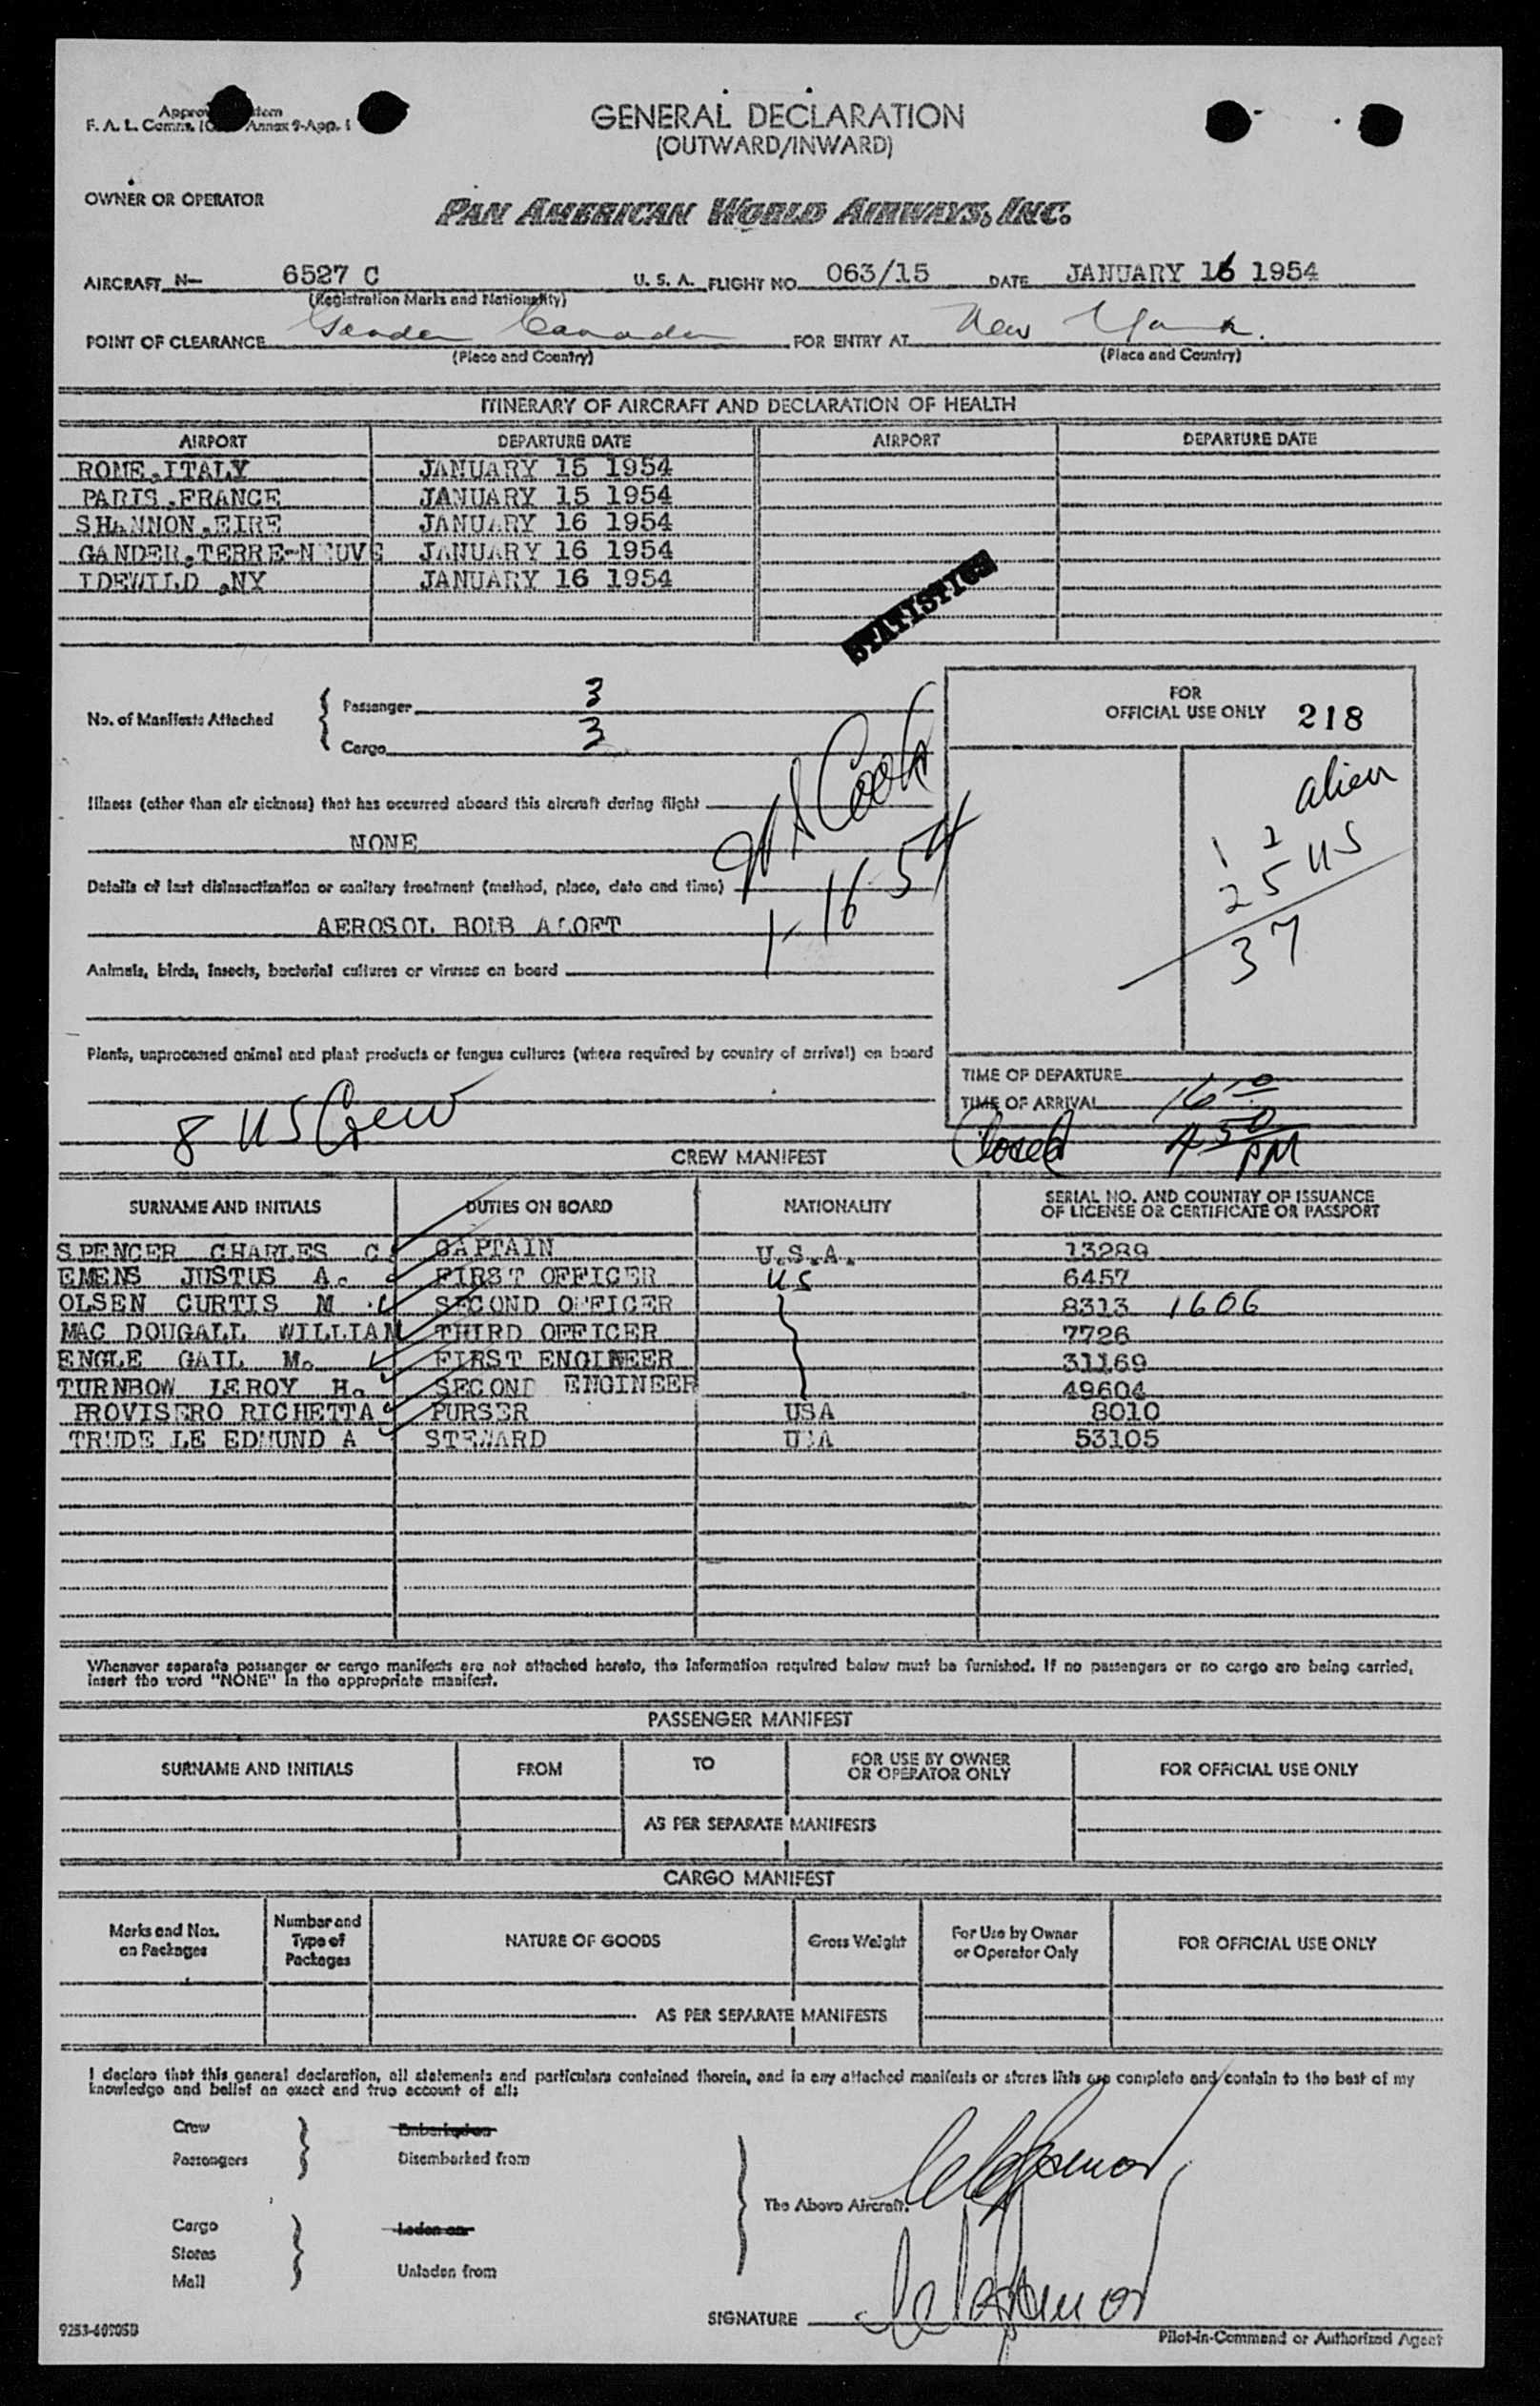 GENERAL DECLARATION
(OUTWARD/INWARD)
F. A. L. Comm. Annex 9-App. 1
OWNER OR OPERATOR
PAN AMERICAN WORLD AIRWAYS, INC.
AIRCRAFT N- 6527 C U. S. A. FLIGHT NO. 063/15 DATE JANUARY 16 1954
(Registration Marks and Nationality)
POINT OF CLEARANCE Gander Canada FOR ENTRY AT New York.
(Place and Country) (Place and Country)
ITINERARY OF AIRCRAFT AND DECLARATION OF HEALTH
AIRPORT DEPARTURE DATE AIRPORT DEPARTURE DATE
ROME,ITALY JANUARY 15 1954
PARIS,FRANCE JANUARY 15 1954
SHANNON,EIRE JANUARY 16 1954
GANDER,TERRE-NEUVE JANUARY 16 1954
IDEWILD ,NY JANUARY 16 1954
STATISTICS
No. of Manifests Attached
Passenger 3
Cargo 3
FOR
OFFICIAL USE ONLY 218
alien
12
25 US
37
Illness (other than air sickness) that has occurred aboard this aircraft during flight
NONE
Cook
1-16-54
Details of last disinsectization or sanitary treatment (method, place, date and time)
AEROSOL BOMB ALOFT
Animals, birds, insects, bacterial cultures or viruses on board
Plants, unprocessed animal and plant products or fungus cultures (where required by country of arrival) on board
TIME OF DEPARTURE
TIME OF ARRIVAL 16 10
Closed 4 50 PM
8 US Crew
CREW MANIFEST
SURNAME AND INITIALS DUTIES ON BOARD NATIONALITY SERIAL NO. AND COUNTRY OF ISSUANCE
OF LICENSE OR CERTIFICATE OR PASSPORT
SPENCER CHARLES C. CAPTAIN U.S.A. 13289
EMENS JUSTUS A. FIRST OFFICER US 6457
OLSEN CURTIS M SECOND OFFICER 8313 1606
MAC DOUGALL WILLIAM THIRD OFFICER 7726
ENGLE GAIL M. FIRST ENGINEER 31169
TURNBOW LEROY H. SECOND ENGINEER 49604
PROVISERO RICHETTA PURSER USA 8010
TRUDE LE EDMUND A STEWARD USA 53105
Whenever separate passenger or cargo manifests are not attached hereto, the information required below must be furnished. If no passengers or no cargo are being carried,
insert the word "NONE" in the appropriate manifest.
PASSENGER MANIFEST
SURNAME AND INITIALS FROM TO FOR USE BY OWNER
OR OPERATOR ONLY FOR OFFICIAL USE ONLY
AS PER SEPARATE MANIFESTS
CARGO MANIFEST
Marks and Nos.
on Packages
Number and
Type of
Packages
NATURE OF GOODS Gross Weight
For Use by Owner
or Operator Only
FOR OFFICIAL USE ONLY
AS PER SEPARATE MANIFESTS
I declare that this general declaration, all statements and particulars contained therein, and in any attached manifests or stores lists are complete and contain to the best of my
knowledge and belief an exact and true account of all:
Crew Embarked on
Passengers Disembarked from
The Above Aircraft.
Cargo Laden on
Stores
Mail Unladen from
SIGNATURE
Pilot-in-Command or Authorized Agent